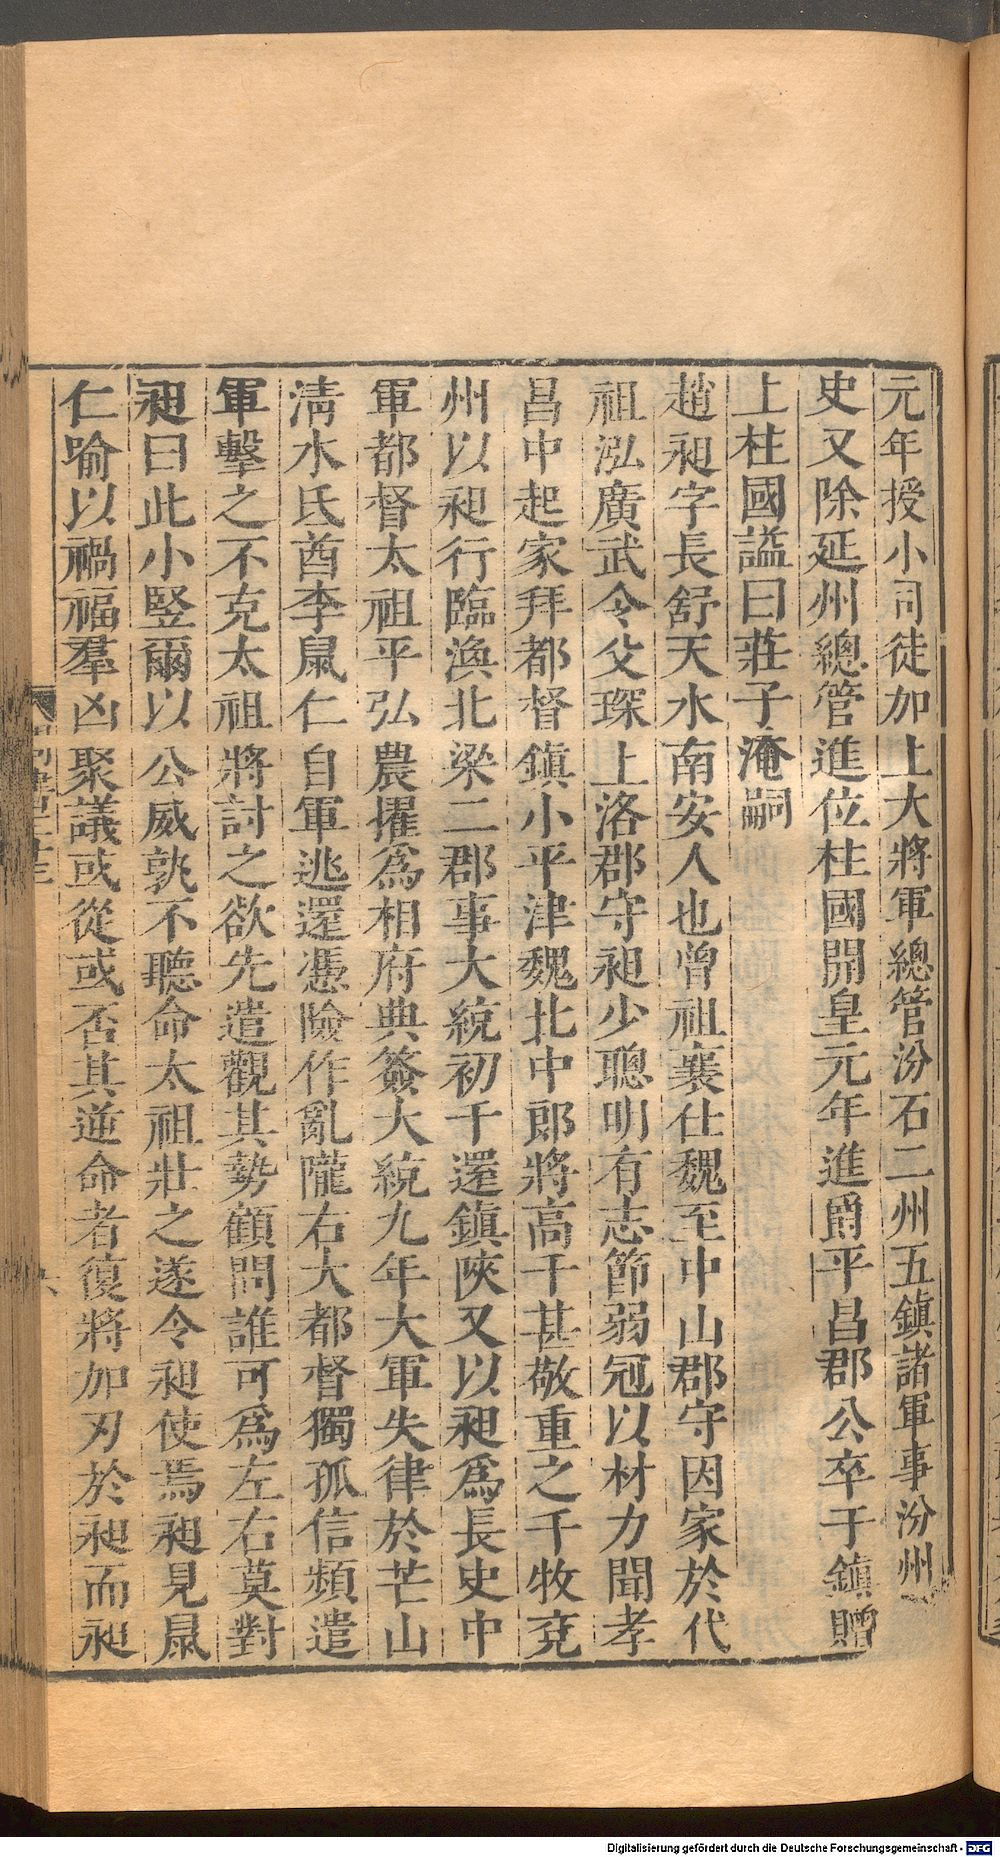 元年授小司徒加上大將軍總管汾石二州五鎮諸軍事汾州
史又除延州總管進位柱國開皇元年進爵平昌郡公卒于鎮贈
上柱國謚曰莊子淹嗣
趙昶字長舒天水南安人也曾祖襄仕魏至中山郡守因家於代
祖泓廣武令父琛上洛郡守昶少聰明有志節弱冠以材力聞孝
昌中起家拜都督鎮小平津魏北中郎將高千甚敬重之千牧兗
州以昶行臨渙北梁二郡事大統初千還鎮陝又以昶爲長史中
軍都督太祖平弘農擢爲相府典簽大統九年大軍失律於芒山
清水氐酋李鼠仁自軍逃還憑險作亂隴右大都督獨孤信頻遣
軍擊之不克太祖將討之欲先遣觀其勢顧問誰可爲左右莫對
昶曰此小竪爾以公威孰不聽命太祖壯之遂令昶使焉昶見鼠
仁喻以禍福羣凶聚議或從或否其逆命者復將加刃於昶而昶
Digitalisierung gefördert durch die Deutsche Forschungsgemeinschaft - DFG